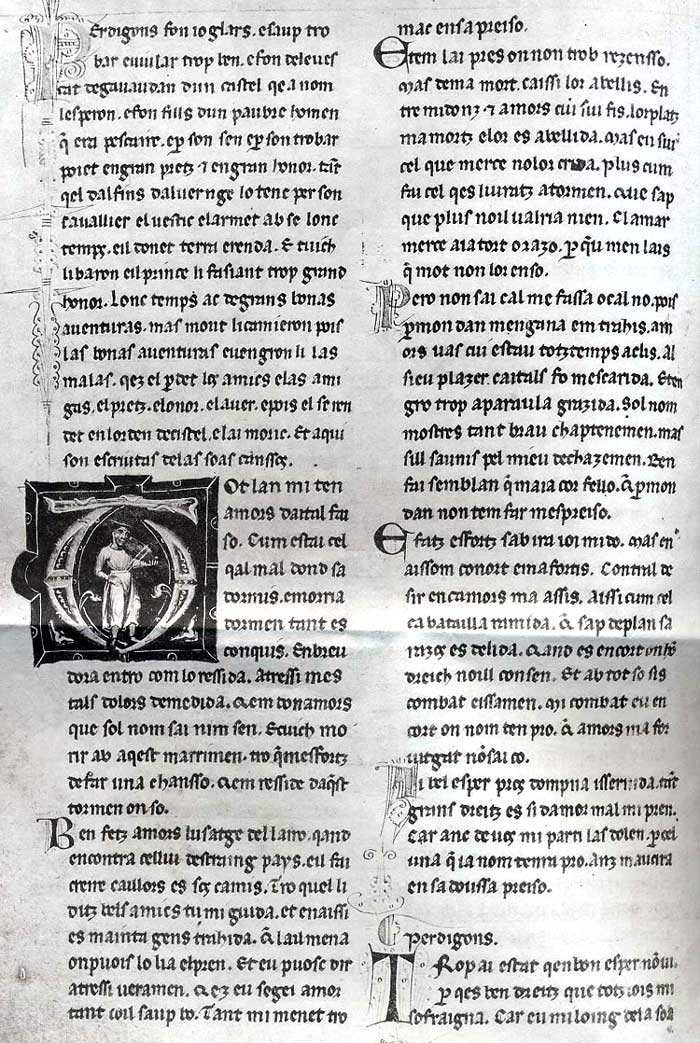 Perdigons fon ioglars. esaup tro
bar euiular trop ben. efon deleues
cat degauaudan dun castel qe a nom
lesperon. efon fills dun paubre homen
q̄ era pescaire. ep̲ son sen ep̲ son trobar
poiet engran pretz ⁊ engran honor. tāt
qel dalfins daluernge lo tenc per son
cauallier el uestic elarmet ab se lonc
temps. eil donet terra erenda. E tuich
li baron eil prince li fasiant trop grand
honor. Lonc temps ac degrans bonas
auenturas. mas mout li camieron pois
las bonas auenturas euengron li las
malas. qez el p̲det los amics elas ami
gas. el pretz. elonor. elauer. epois el se ren
det en lorden decistel. elai moric. Et aqui
son escriutas delas soas cansos.
Tot lan mi ten
amors daital fai
so. Cum estai cel
qal mal dond sa
dormis. emorria
dormen tant es
conquis. En breu
dora entro com lo ressida. Atressi mes
tals dolors demedida. Qem don amors
que sol nom sai nim sen. Ecuich mo
rir ab aqest marrimen. tro q̄mesfortz
defar una chansso. Qem resside daqst
tormen on so.
Ben fetz amors lusatge del lairo. qand
encontra celliu destraing pays. eil fai
creire caillors es sos camis. Tro quel li
ditz bels amics tu mi guida. et enaissi
es mainta gens trahida. Qe lail mena
on puois lo lia elpren. Et eu puosc dir
atressi ueramen. Qez eu segei amor
tant coil saup bo. Tant mi menet tro
mac en sa preiso.
Etem lai pres on non trob rezensso.
Mas de ma mort. caissi lor abellis. En
tre midonz ⁊ amors cui sui fis. lor platz
ma mortz elor es abellida. Mas eu sui
cel que merce nolor crida. plus cum
fai cel qes liuratz atormen. Qäe sap
que plus noil ualria nien. Clamar
merce aia tort o razo. p̲ qu men lais
q̄ mot non lor enso.
Pero non sai cal me fassa o cal no. pois
p̲ mon dan mengana em trahis. am
ors uas cui estau totz temps aclis. Al
sieu plazer. caitals fo mescarida. Eten
gro trop aparaula grazida. Sol nom
mostres tant brau chaptenemen. mas
sill saunis pel mieu dechazemen. Ren
fai semblan q̄ maia cor fello. Qe p̲ mon
dan non tem far mespreiso.
E fatz esfortz sab ira ioi mi do. Mas en
aissom conort em afortis. Contral de
sir en camors ma assis. Aissi cum cel
ca batailla ramida. Qe sap de plan sa
razos es delida. Qand es en cort on hō
dreich noill consen. Et ab tot so sis
combat eissamen. Mi combat eu en
cort on nom ten pro. Qe amors ma for
iutgat nō sai co.
bel esper pros dompna isserrnida. tāt
grans dreitz es si damor mal mi pren.
Car anc de uos mi parti las dolen. p̲ cel
una q̄ ia nom tenra pro. Anz maucira
en sa doussa preiso.
Perdigons.
Trop ai estat qen bon esper nō ui.
p̲ qes ben dreitz que totz iois mi
sofraigna. Car eu mi loing de la soa